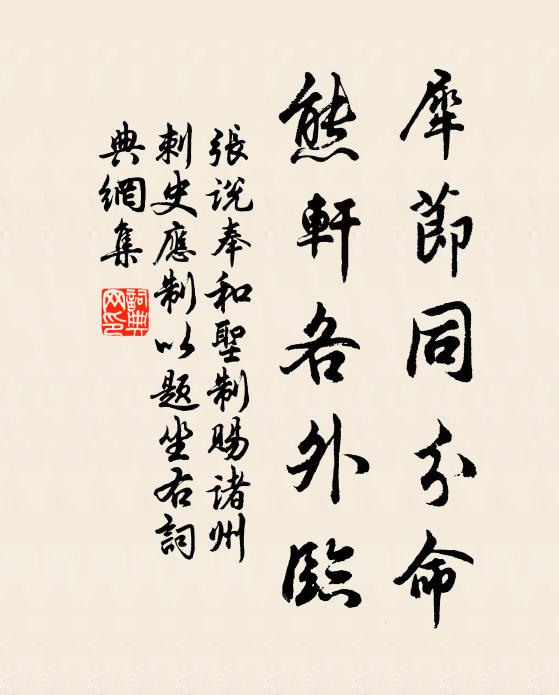 犀節同分命
熊軒各外臨
張說奉和聖制賜諸州
刺史應制以題坐右詞
典網集
詞典網印